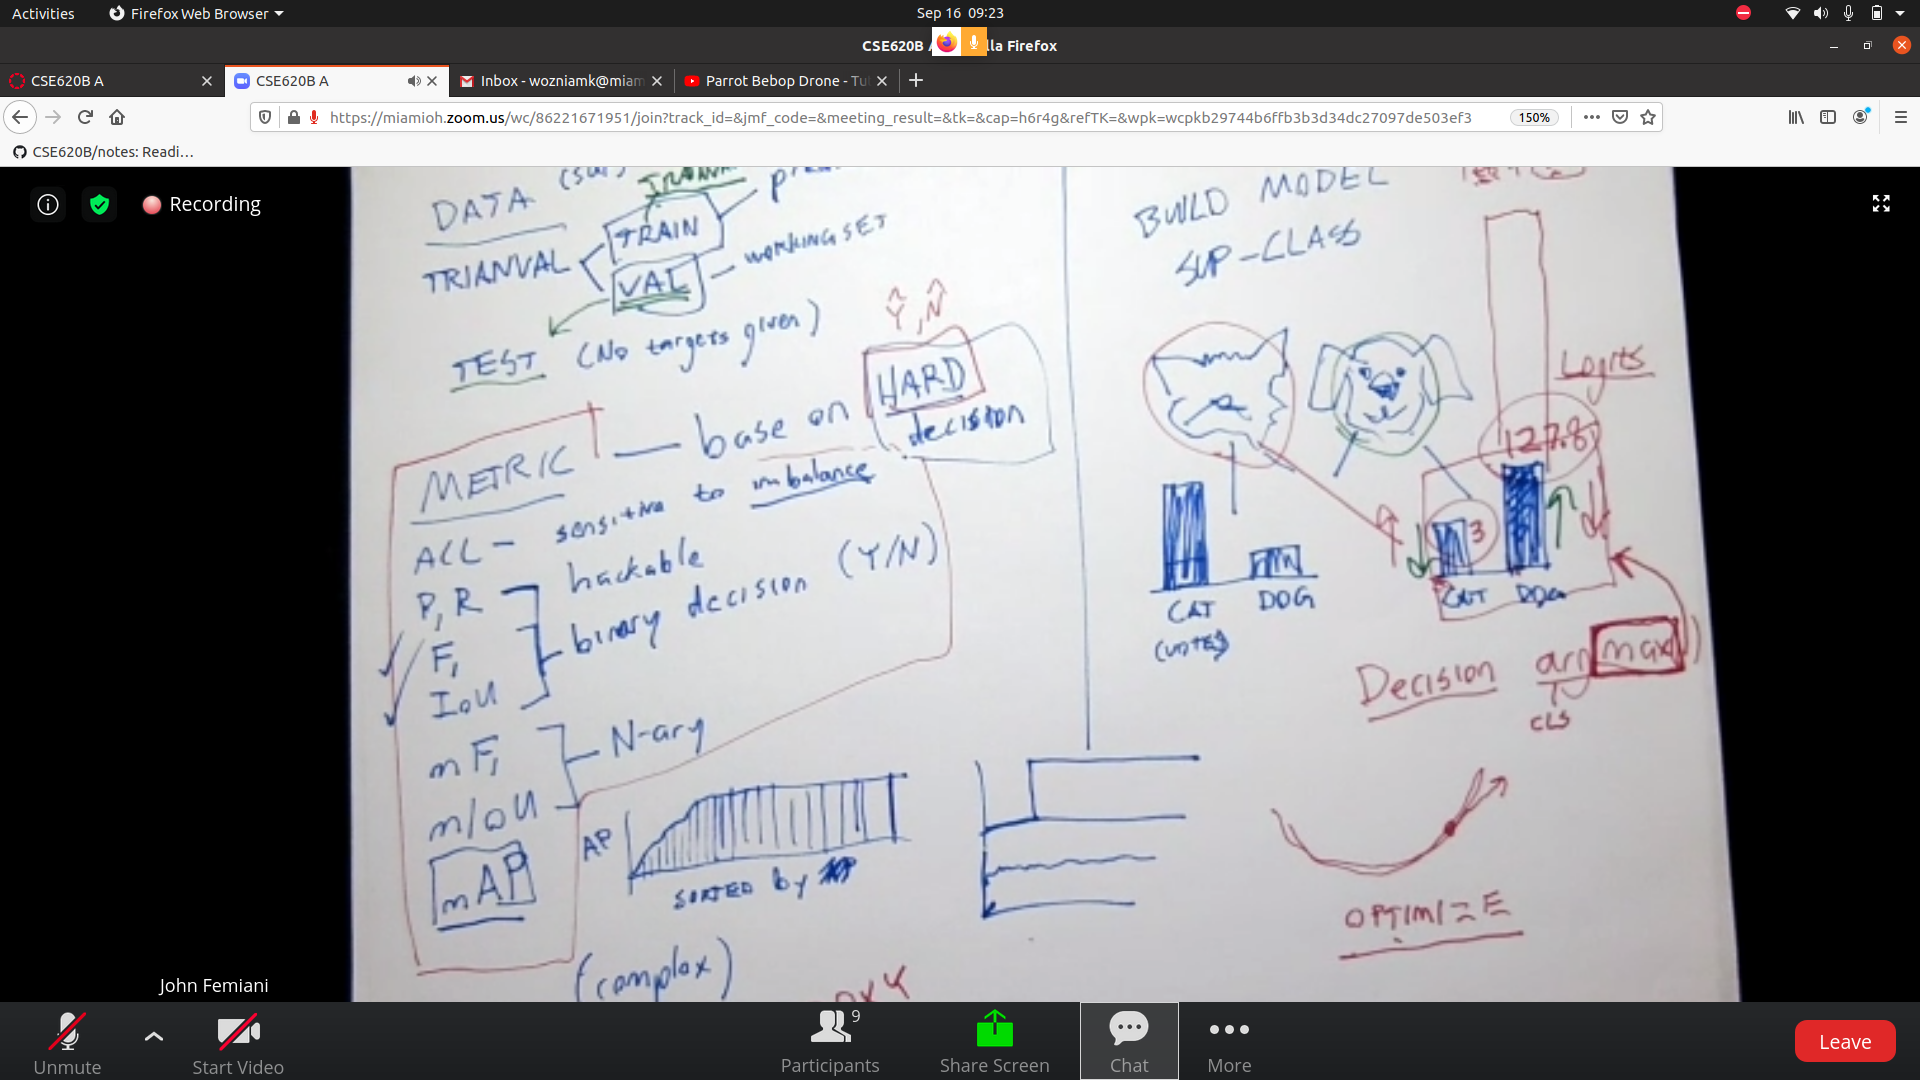 Activities
Firefox Web Browser
Sep 16 09:23
CSE620B A
lla Firefox
CSE620B A
CSE620B A
Inbox - wozniamk@miam
Parrot Bebop Drone - Tu
https://miamioh.zoom.us/wc/86221671951/join?track_id=&jmf_code=&meeting_result=&tk=&cap=h6r4g&refTK=&wpk=wcpkb29744b6ffb3b3d34dc27097de503ef3
150%
CSE620B/notes: Readi…
Recording
DATA
TRIANVAL
TRAIN
VAL
WORKING SET
TEST (No targets given)
Ŷ, N̂
METRIC — base on HARD
decision
ACC - sensitive to imbalance
P, R hackable
F, binary decision (Y/N)
IoU
mF, N-ary
mIoU
mAP
AP
SORTED by
(complex)
BUILD MODEL
SUP-CLASS
Logits
127.8
3
CAT DOG
(votes)
CAT DOG
Decision argmax( )
CLS
OPTIMIZE
John Femiani
Unmute
Start Video
Participants
9
Share Screen
Chat
More
Leave